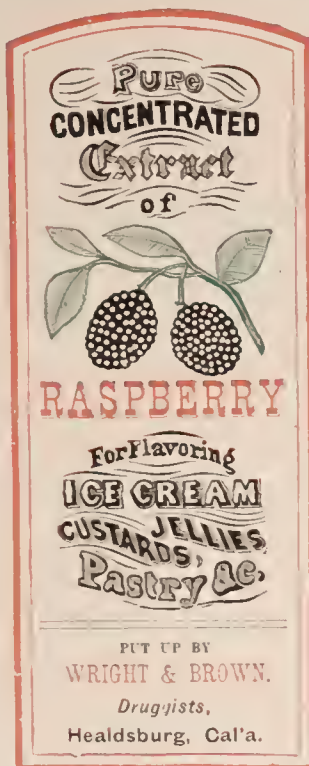 Pure
CONCENTRATED
Extract
of
RASPBERRY
For Flavoring
ICE CREAM
CUSTARDS, JELLIES
Pastry &c,
PUT UP BY
WRIGHT & BROWN.
Druggists,
Healdsburg, Cal'a.